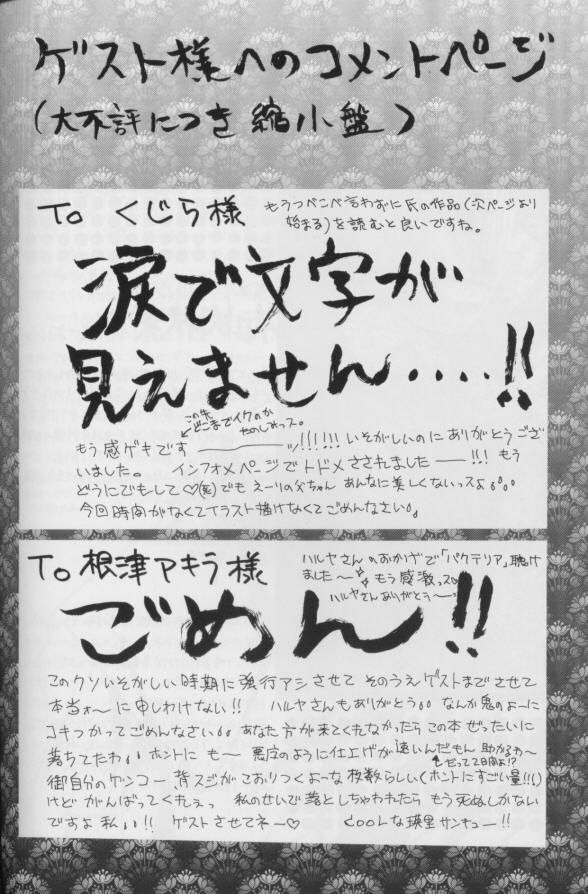 ゲスト様へのコメントページ
(大不評につき縮小盤)
To くじら様
もうつべこべ言わずに氏の作品(次ページより
始まる)を読むと良いですね。
涙で文字が
見えません....!!
この先
どこまでイクのか
もう感ゲキです ――ッ!!!!!! いそがしいのに ありがとうござ
いました。 インフォメページで トドメさされました ――!!! もう
どうにでもして♡(死) でも えーりの父ちゃん あんなに美しくないっスよ。。。
今回時間がなくてイラスト描けなくてごめんなさい。
To 根津アキラ様
ハルヤさんのおかげで「バクテリア」聴け
ました〜 もう感激っス♡
ハルヤさんありがとう〜
ごめん!!
このクソいそがしい時期に強行アシさせて そのうえゲストまでさせて
本当ォ〜に申しわけない!! ハルヤさんもありがとう。。 なんか鬼のよーに
コキつかってごめんなさい。。 あなた方が来てくれなかったら この本ぜったいに
落ちてたわ。。 ホントに も〜 悪魔のように仕上げが速いんだもん 助かるわ〜
だって2日間よ!?
御自分のゲンコー、背スジがこおりつくよーな枚数らしい(ホントにすごい量!!)
けど がんばってくれぇっ 私のせいで落としちゃわれたら もう死ぬしかない
ですよ 私ぃ!! ゲストさせてネー♡ Coolな瑛里サンキュー!!